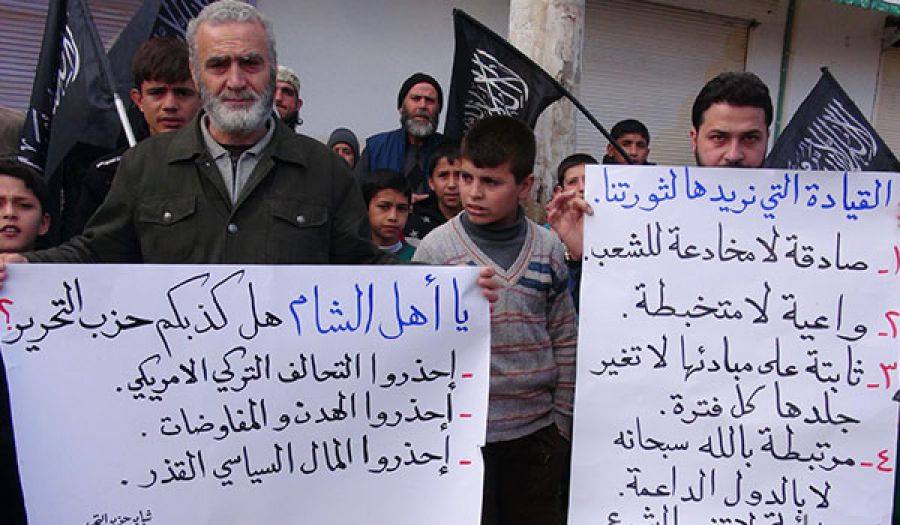 القيادة التي نريدها لثورتنا.
١- صادقة لا مخادعة للشعب.
٢- واعية لا متخبطة.
٣- ثابتة على مبادئها لا تغير
جلدها كل فترة.
٤- مرتبطة بالله سبحانه
لا بالدول الداعمة.
يا أهل الشام هل كذبكم حزب التحرير؟
- إحذروا التحالف التركي الامريكي.
- إحذروا الهدن و المفاوضات.
- إحذروا المال السياسي القذر.
شباب حزب